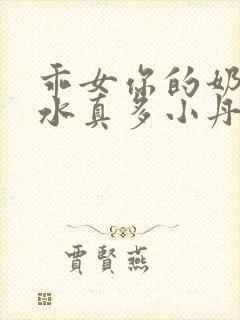 乖女你的奶
水真多小丹
賈賢燕